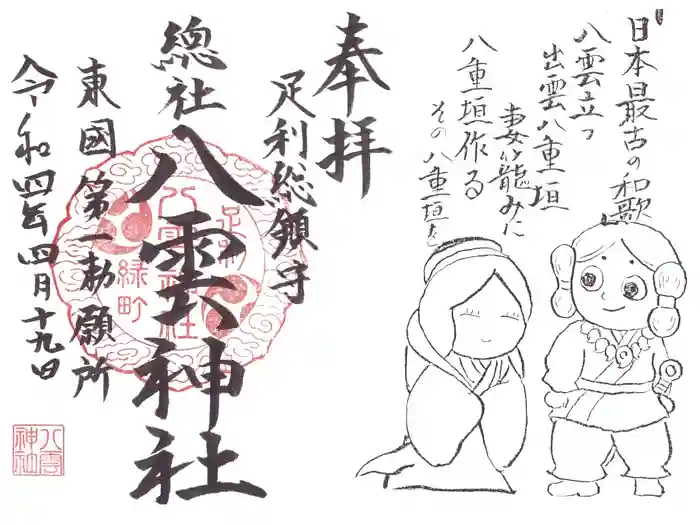 日本最古の和歌
八雲立つ
出雲八重垣
妻籠みに
八重垣作る
その八重垣を
奉拝
足利総鎮守
總社
八雲神社
東國第一勅願所
令和四年四月十九日
足利
八雲神社
緑町
八雲神社